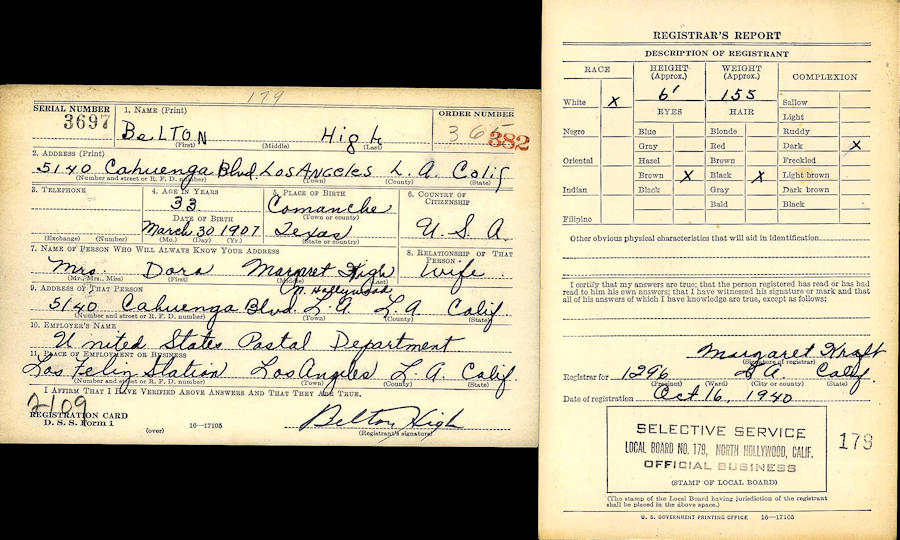 179
SERIAL NUMBER
3697
1. NAME (Print)
BELTON High
(First) (Middle) (Last)
ORDER NUMBER
382
2. ADDRESS (Print)
5140 Cahuenga Blvd Los Angeles L. A. Calif
(Number and street or R. F. D. number) (Town) (County) (State)
3. TELEPHONE
(Exchange) (Number)
4. AGE IN YEARS
33
DATE OF BIRTH
March 30 1907
(Mo.) (Day) (Yr.)
5. PLACE OF BIRTH
Comanche
(Town or county)
Texas
(State or country)
6. COUNTRY OF CITIZENSHIP
U. S. A.
7. NAME OF PERSON WHO WILL ALWAYS KNOW YOUR ADDRESS
Mrs. Dora Margret High
(Mr., Mrs., Miss) (First) (Middle) (Last)
8. RELATIONSHIP OF THAT PERSON
Wife
9. ADDRESS OF THAT PERSON
N. Hollywood
5140 Cahuenga Blvd. L. A. L. A. Calif.
(Number and street or R. F. D. number) (Town) (County) (State)
10. EMPLOYER'S NAME
United States Postal Department
11. PLACE OF EMPLOYMENT OR BUSINESS
Los Feliz Station Los Angeles L. A. Calif
(Number and street or R. F. D. number) (Town) (County) (State)
I AFFIRM THAT I HAVE VERIFIED ABOVE ANSWERS AND THAT THEY ARE TRUE.
2-109
REGISTRATION CARD
D. S. S. Form 1
(over)
16—17105
Belton High
(Registrant's signature)
REGISTRAR'S REPORT
DESCRIPTION OF REGISTRANT
RACE
White X
Negro
Oriental
Indian
Filipino
HEIGHT
(Approx.)
6'
WEIGHT
(Approx.)
155
EYES
Blue
Gray
Hazel
Brown X
Black
HAIR
Blonde
Red
Brown
Black X
Gray
Bald
COMPLEXION
Sallow
Light
Ruddy
Dark X
Freckled
Light brown
Dark brown
Black
Other obvious physical characteristics that will aid in identification
I certify that my answers are true; that the person registered has read or has had
read to him his own answers; that I have witnessed his signature or mark and that
all of his answers of which I have knowledge are true, except as follows:
Margaret Kraft
(Signature of registrar)
Registrar for 1296 L A. Calif.
(Precinct) (Ward) (City or county) (State)
Date of registration Oct 16, 1940
SELECTIVE SERVICE
LOCAL BOARD NO. 179, NORTH HOLLYWOOD, CALIF.
OFFICIAL BUSINESS
(STAMP OF LOCAL BOARD)
179
(The stamp of the Local Board having jurisdiction of the registrant
shall be placed in the above space.)
U. S. GOVERNMENT PRINTING OFFICE 16—17105